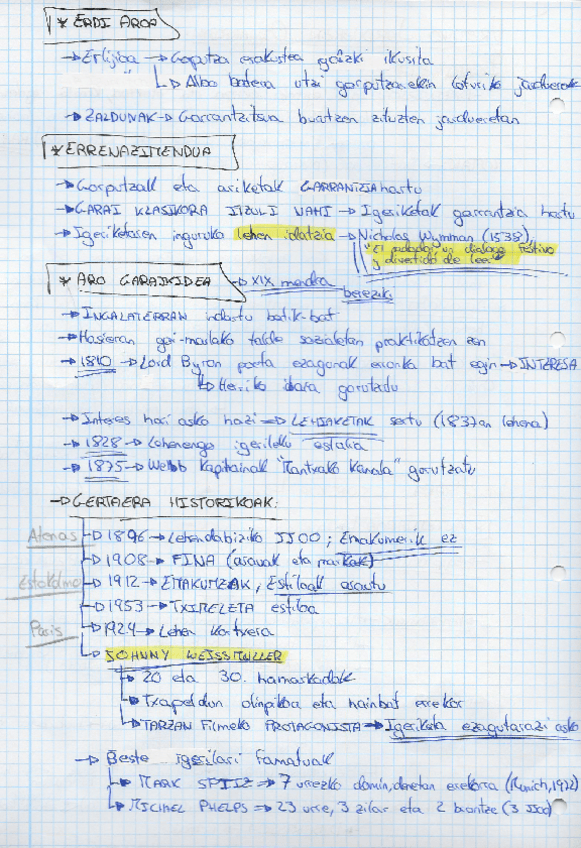 * ERDI AROA
→ Erlijioa → Gorputza erakustea gaizki ikusita
" ↳ Albo batera utzi gorputzarekin loturiko jarduerak
→ ZALDUNAK → Garrantzitsua burutzen zituzten jardueretan
* ERRENAZIMENDUA
→ Gorputzak eta ariketak GARRANTZIA hartu
→ GARAI KLASIKORA ITZULI NAHI → Igeriketak garrantzia hartu
→ Igeriketaren inguruko lehen idatzia → Nicholas Wynman (1538),
"El
dialogo festivo
y divertido de leer"
* ARO GARAIKIDEA → XIX mendea
bereziki
→ INGALATERRAN indartu batik-bat
→ Hasieran goi-mailako talde sozialetan praktikatzen zen
→ 1810 → Lord Byron poeta ezagunak erronka bat egin → INTERESA
↳ Herriko ibaia gurutzatu
→ Interes hori asko hazi → LEHIAKETAK sortu (1837an lehena)
→ 1828 → Lehenengo igerileku estalia
→ 1875 → Webb Kapitainak "Mantxako Kanala" gurutzatu
→ GERTAERA HISTORIKOAK:
Atenas → 1896 → Lehendabiziko JJOO; Emakumerik ez
→ 1908 → FINA (arauak eta markak)
Estokolmo → 1912 → EMAKUMEAK, Estiloak arautu
→ 1953 → TXIMELETA estiloa
Paris → 1924 → Lehen kortxera
↳ JOHNNY WEISSMULLER
→ 20 eta 30. hamarkadak
→ Txapeldun olinpikoa eta hainbat errekor
→ TARZAN filmeko PROTAGONISTA → Igeriketa ezagutarazi asko
→ Beste igerilari famatuak
→ MARK SPITZ → 7 urrezko domin, denetan errekorra (Munich, 1972)
→ MICHAEL PHELPS → 23 urre, 3 zilar eta 2 brontze (3 JJOO)